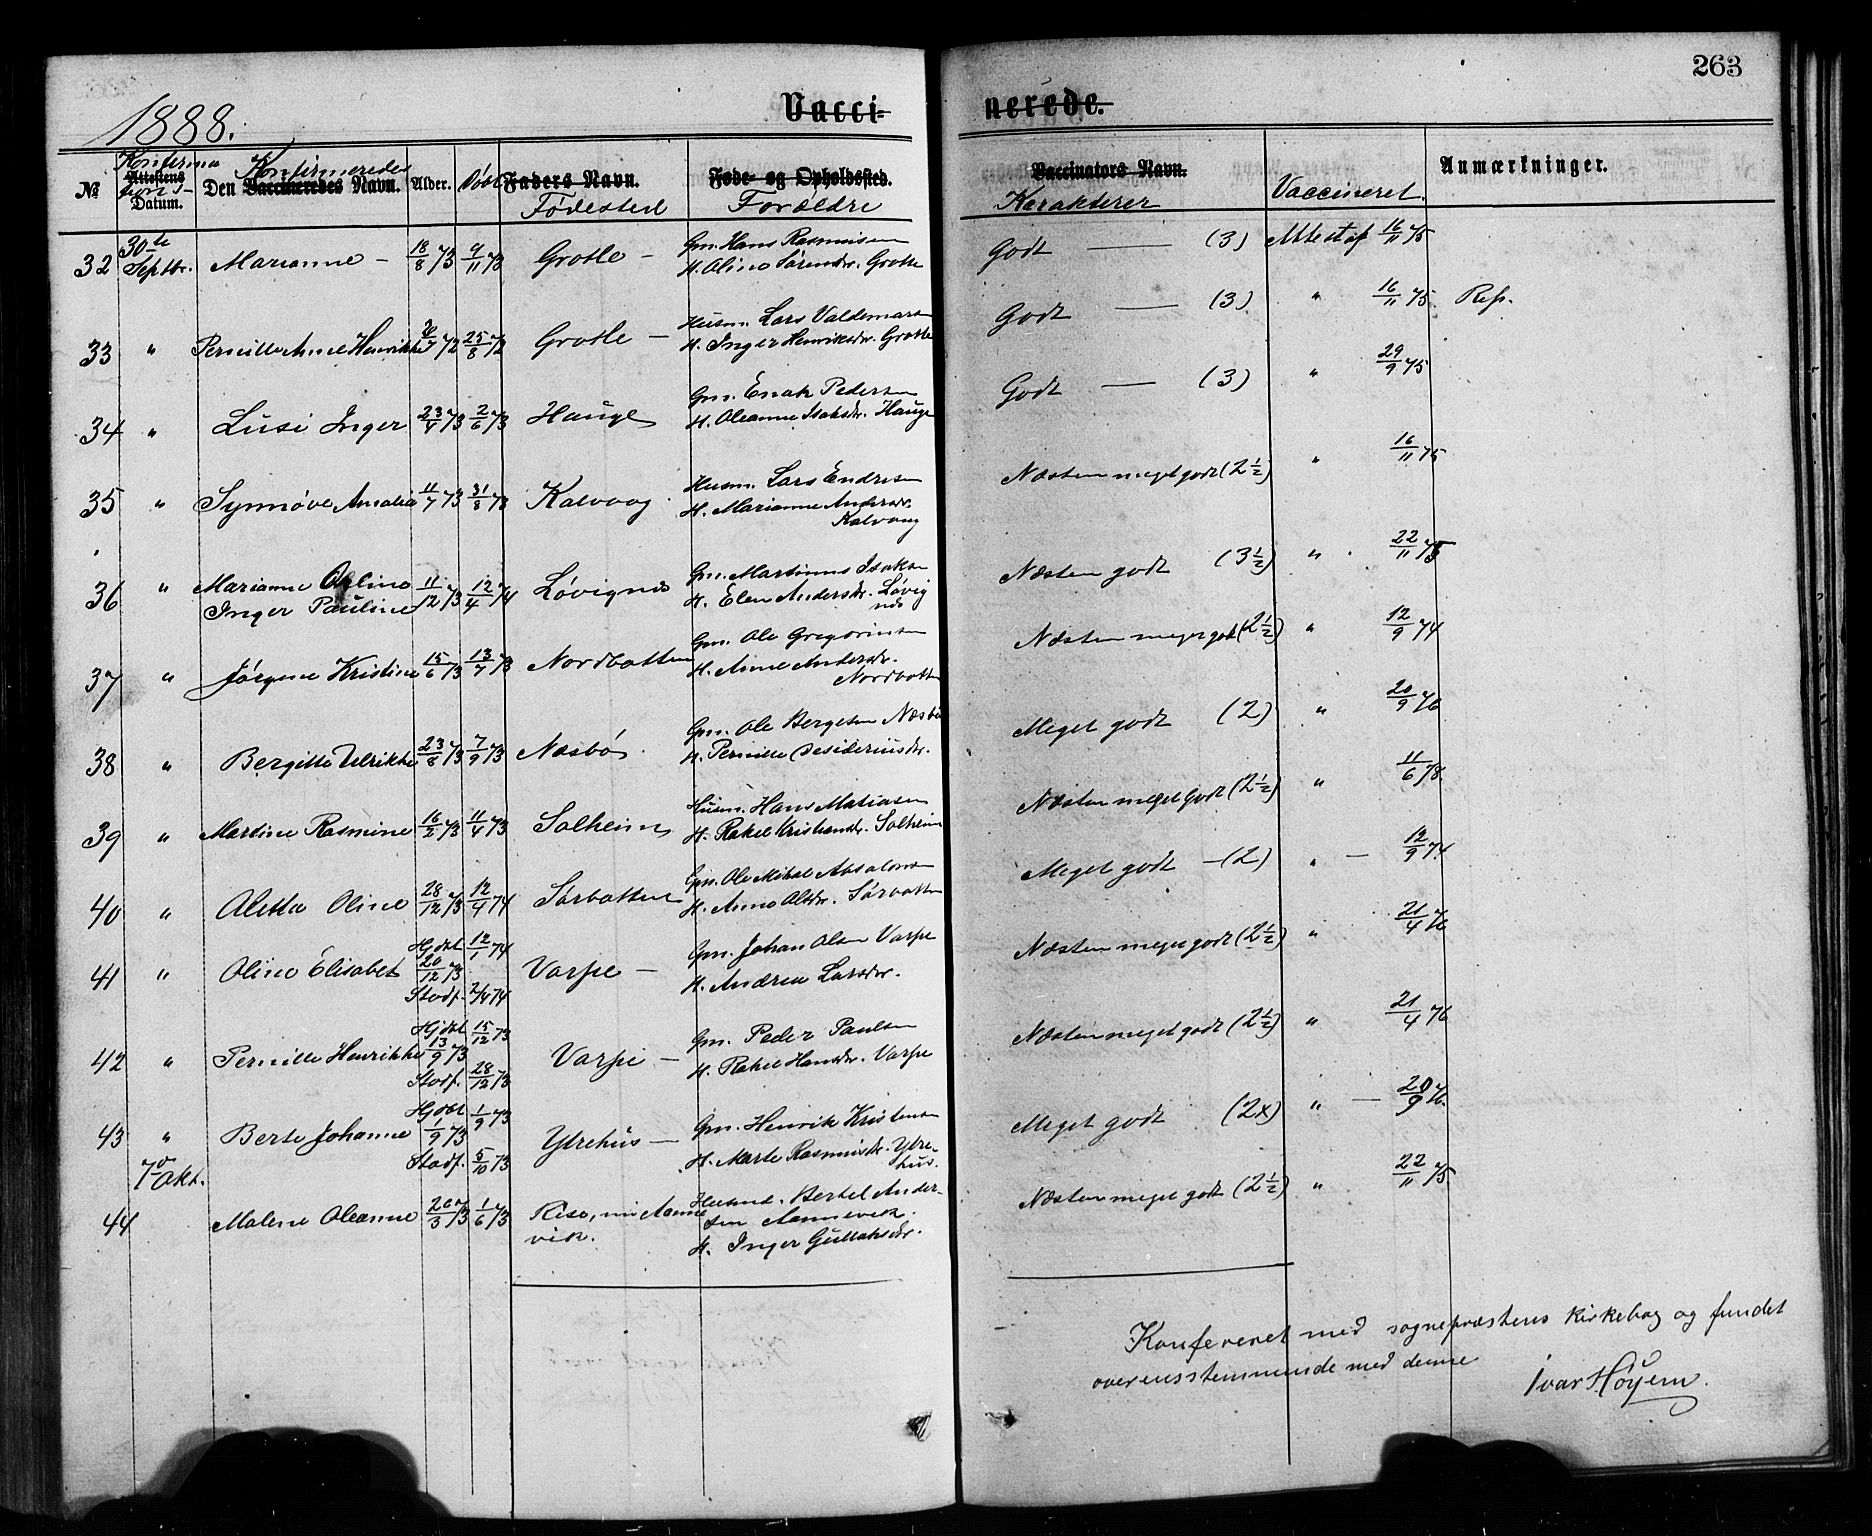 263
1888.
Vacci-
nerede.
No
Konfirma
Attestens
tions-
Datum.
Konfirmeredes
Den Vaccineredes Navn.
Alder.
Døbt
Faders Navn.
Fødested
Føde- og Opholdssted.
Forældre
Vaccinators Navn.
Karakterer
Vaccineret
Anmærkninger.
32 30te Septbr. Marianne - 18/8 73 9/11 73 Grotle - Gm. Hans Rasmusen
H. Oline Sørensdr. Grotle
Godt — (3) Attest af 16/11 75
33 " Pernille Anne Henrikke 72 25/8 72 Grotle - Husm. Lars Valdemarsen
H. Inger Henriksdr. Grotle
Godt — (3) " 16/11 75 Rep.
34 " Lusi Inger 23/4 73 2/6 73 Hauge Gm. Enok Pedersen
H. Oleanne Isaksdr. Hauge
Godt — (3) " 29/9 75
35 " Synnøve Amalia 11/7 73 31/8 73 Kalvaag Husm. Lars Endresen
H. Marianne Andersdr.
Kalvaag
Næsten meget godt (2½) " 16/11 75
36 " Marianne Oline
Inger Pauline 11/12 73 12/4 74 Løvignes Gm. Martinus Isaksen
H. Elen Andersdr. Løvig
nes
Næsten godt (3½) " 22/11 75
37 " Jørgine Kristine 15/6 73 13/7 73 Nordbotten Gm. Ole Gregoriusen
H. Anne Andersdr.
Nordbotten
Næsten meget godt (2½) " 12/9 74
38 " Bergitte Ulrikke 23/8 73 7/9 73 Næsbø Gm. Ole Bergesen Næsbø
H. Pernille Desideriusdr.
Meget godt (2) " 20/9 76
39 " Martine Rasmine 16/2 73 11/4 73 Solheim Husm. Hans Matiasen
H. Rakel Kristensdr. Solheim
Næsten meget godt (2½) " 11/6 78.
40 " Aletta Oline 28/12 73 12/4 74 Sørbotten Gm. Ole Mikal Absalonsen
H. Anne Olsdr. Sørbotten
Meget godt - (2) " — 12/9 74
41 " Oline Elisabet Hjdbt 20/12 73 Stadf. 12/1 74 2/4 74 Varpe - Gm. Johan Olsen Varpe
H. Andrea Larsdr.
Næsten meget godt (2½) " 21/4 76
42 " Pernille Henrikke Hjdbt 13/9 73 Stadf. 15/12 73 28/12 73 Varpe - Gm. Peder Paulsen
H. Rakel Hansdr. Varpe
Næsten meget godt (2½) " 21/4 76
43 " Berte Johanne Hjdbt 1/9 73 Stadf. 1/9 73 5/10 73 Ytrehus - Gm. Henrik Kristensen
H. Marte Rasmusdr. Ytre-
hus.
Meget godt (2x) " — 20/9 76.
7de Okt.
44 Malene Oleanne 20/3 73 1/6 73 Rise, nu Aanne
vik. Husmd. Bertel Ander-
sen Aannevik.
H. Inger Gullaksdr.
Næsten meget godt (2½) " 22/11 75
Konfereret med sogneprestens kirkebog og fundet
overensstemmende med denne
Ivar Høyem.